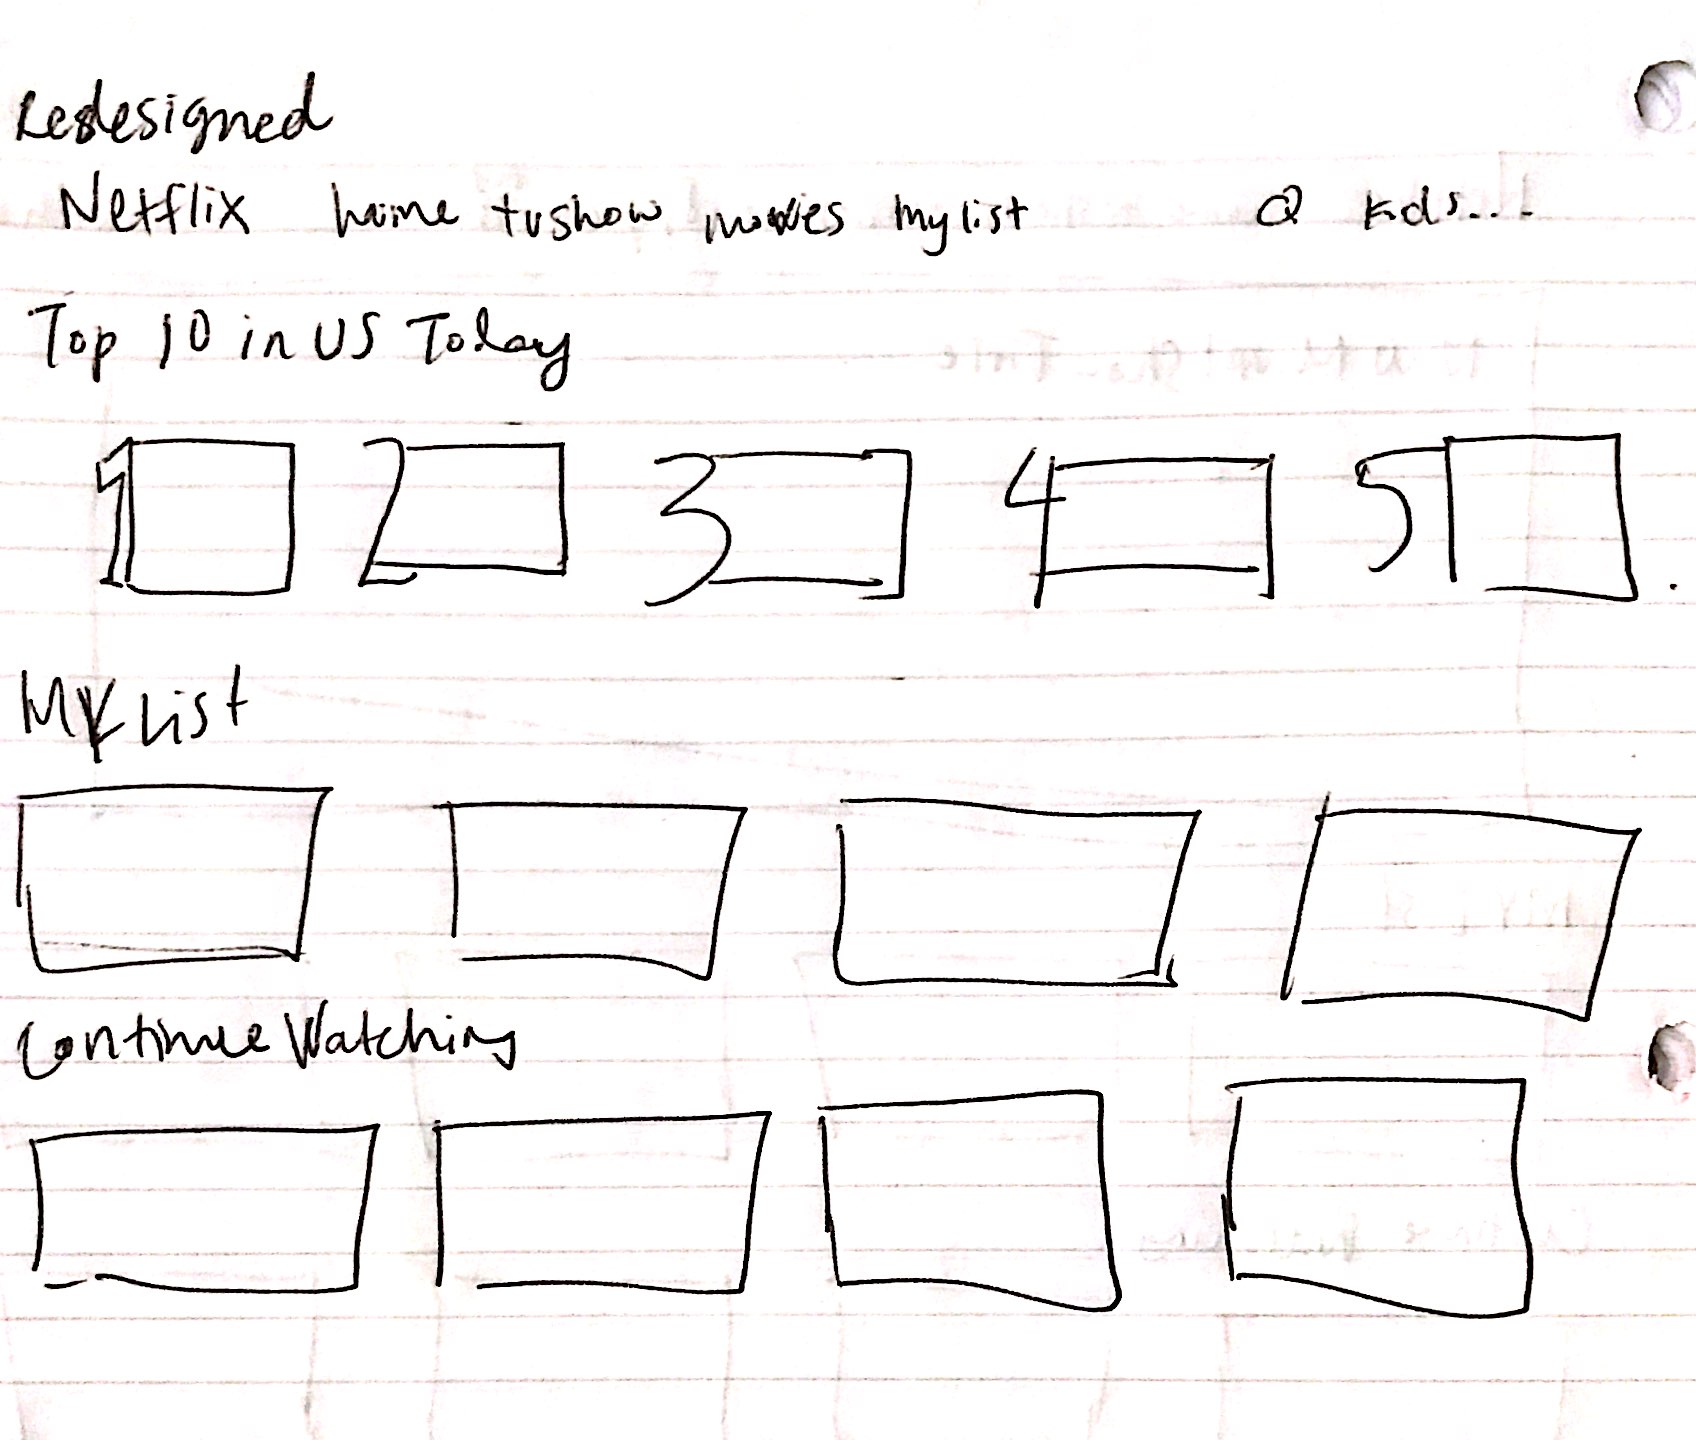 Redesigned
Netflix home tvshow movies my list Q Kids...
Top 10 in US Today
1 2 3 4 5
My List
Continue Watching